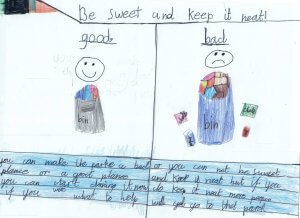 Be sweet and keep it neat!
good
bad
bin
bin
you can make the a bad or you can not be sweet
planet or a good planet and keep it neat but if you
you can start doing it now do keep it neat more people
if you what to help will go to that